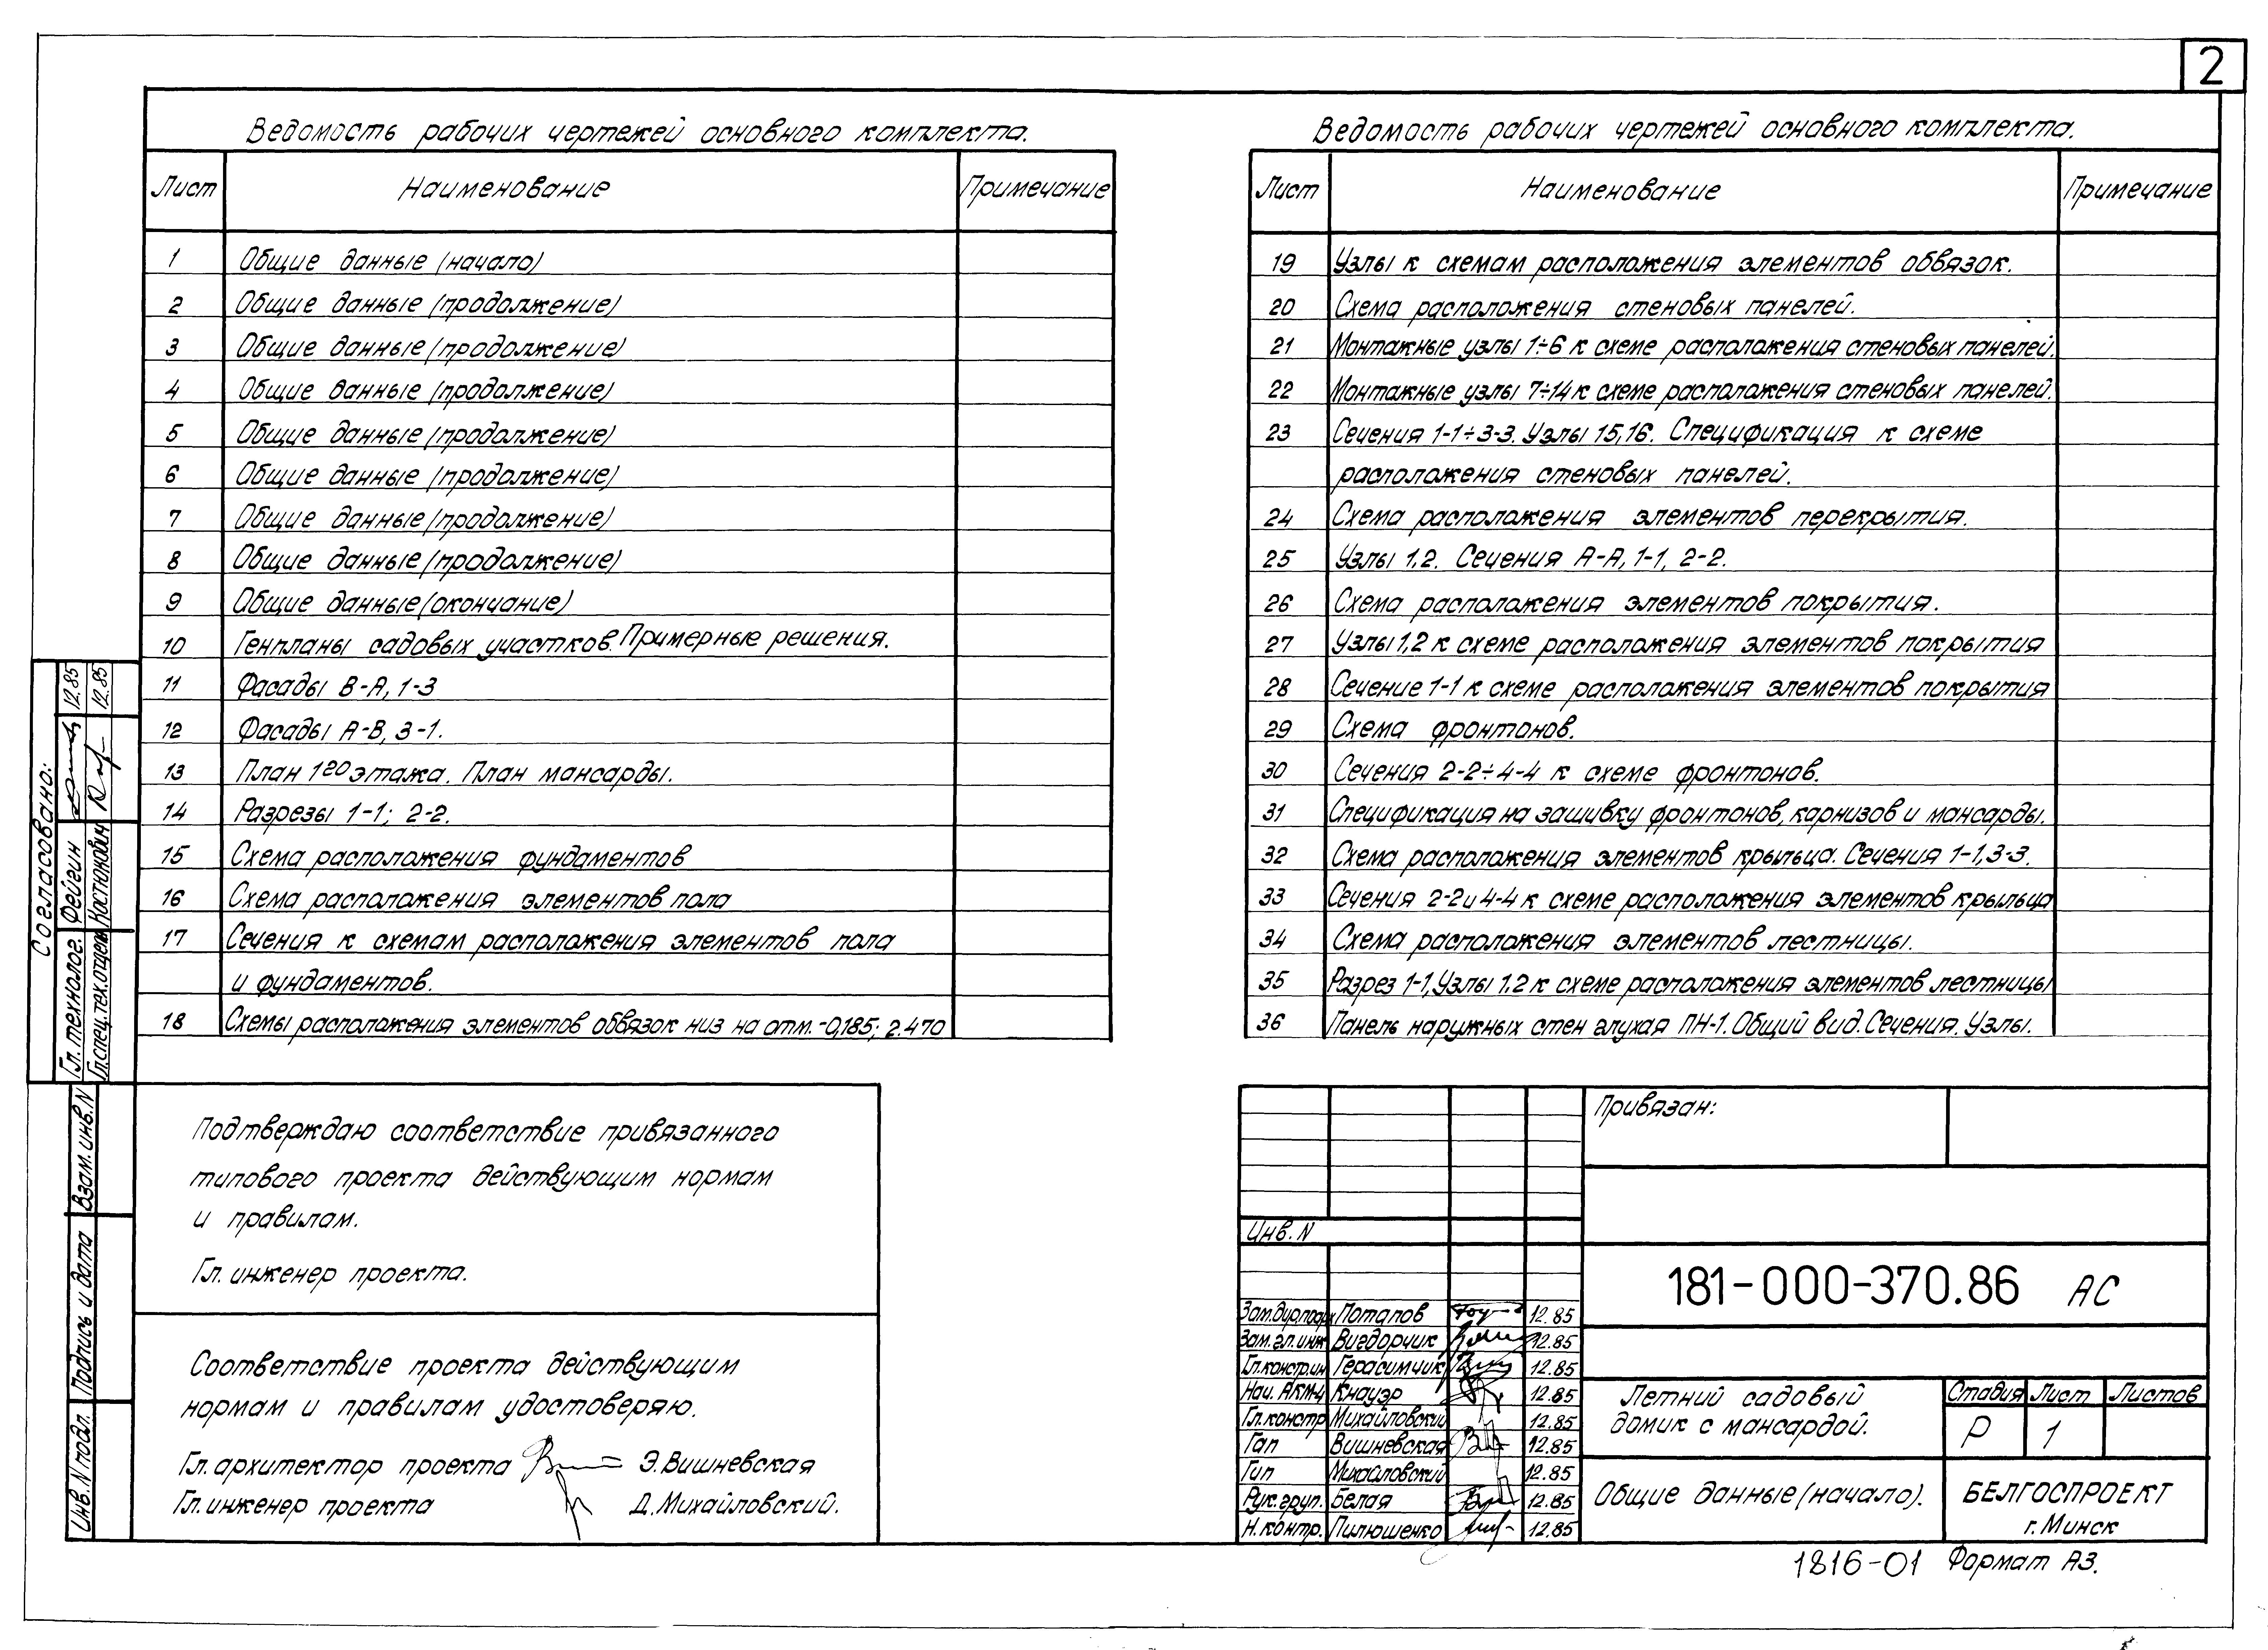 2
Ведомость рабочих чертежей основного комплекта.
Лист Наименование Примечание
1 Общие данные (начало)
2 Общие данные (продолжение)
3 Общие данные (продолжение)
4 Общие данные (продолжение)
5 Общие данные (продолжение)
6 Общие данные (продолжение)
7 Общие данные (продолжение)
8 Общие данные (продолжение)
9 Общие данные (окончание)
10 Генпланы садовых участков. Примерные решения.
11 Фасады В-А, 1-3
12 Фасады А-В, 3-1.
13 План 1го этажа. План мансарды.
14 Разрезы 1-1; 2-2.
15 Схема расположения фундаментов
16 Схема расположения элементов пола
17 Сечения к схемам расположения элементов пола
и фундаментов.
18 Схемы расположения элементов обвязок низ на отм. -0,185; 2.470
Ведомость рабочих чертежей основного комплекта.
Лист Наименование Примечание
19 Узлы к схемам расположения элементов обвязок.
20 Схема расположения стеновых панелей.
21 Монтажные узлы 1÷6 к схеме расположения стеновых панелей.
22 Монтажные узлы 7÷14 к схеме расположения стеновых панелей.
23 Сечения 1-1÷3-3. Узлы 15,16. Спецификация к схеме
расположения стеновых панелей.
24 Схема расположения элементов перекрытия.
25 Узлы 1,2. Сечения А-А, 1-1, 2-2.
26 Схема расположения элементов покрытия.
27 Узлы 1,2 к схеме расположения элементов покрытия
28 Сечение 1-1 к схеме расположения элементов покрытия
29 Схема фронтонов.
30 Сечения 2-2÷4-4 к схеме фронтонов.
31 Спецификация на зашивку фронтонов, карнизов и мансарды.
32 Схема расположения элементов крыльца. Сечения 1-1, 3-3.
33 Сечения 2-2 и 4-4 к схеме расположения элементов крыльца
34 Схема расположения элементов лестницы.
35 Разрез 1-1, Узлы 1.2 к схеме расположения элементов лестницы
36 Панель наружных стен глухая ПН-1. Общий вид. Сечения. Узлы.
Согласовано:
Гл. технолог. Фейгин 12.85
Гл.спец.тех.отдела Костюкович 12.85
Взам. инв. N
Подпись и дата
Инв. N подл.
Подтверждаю соответствие привязанного
типового проекта действующим нормам
и правилам.
Гл. инженер проекта.
Соответствие проекта действующим
нормам и правилам удостоверяю.
Гл. архитектор проекта Э. Вишневская
Гл. инженер проекта Д. Михайловский.
Привязан:
Инв. N
181-000-370.86 АС
Потапов 12.85
Зам. гл. инж Вигдорчик 12.85
Гл.констр.ин Герасимчик 12.85
Нач. АКМ-4 Кнауэр 12.85
Гл.констр Михайловский 12.85
Гап Вишневская 12.85
Гип Михайловский 12.85
Рук. груп. Белая 12.85
Н. контр. Пилюшенко 12.85
Летний садовый
домик с мансардой.
Стадия Лист Листов
Р 1
Общие данные (начало).
БЕЛГОСПРОЕКТ
г. Минск
1816-01 Формат А3.